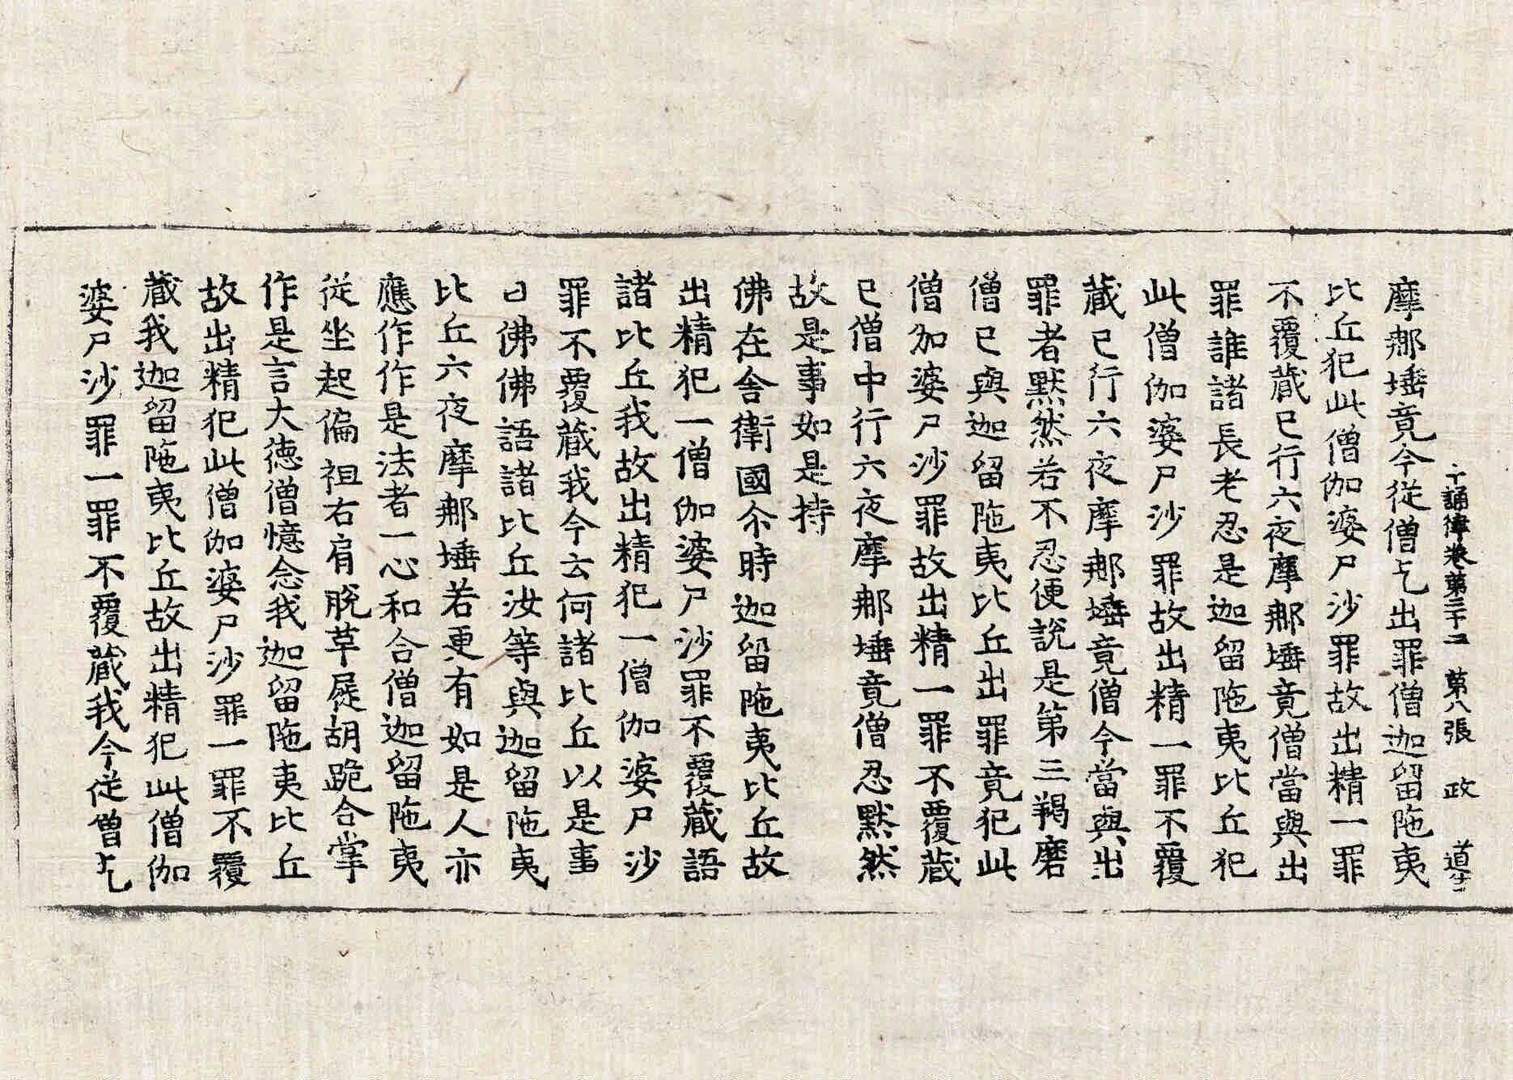 十誦律卷第三十二 第八張 政 道士
摩那埵竟今從僧乞出罪僧迦留陁夷
比丘犯此僧伽婆尸沙罪故出精一罪
不覆藏已行六夜摩那埵竟僧當與出
罪誰諸長老忍是迦留陁夷比丘犯
此僧伽婆尸沙罪故出精一罪不覆
藏已行六夜摩那埵竟僧今當與出
罪者默然若不忍便說是第三羯磨
僧已與迦留陁夷比丘出罪竟犯此
僧加婆尸沙罪故出精一罪不覆藏
已僧中行六夜摩那埵竟僧忍默然
故是事如是持
佛在舍衛國尒時迦留陁夷比丘故
出精犯一僧伽婆尸沙罪不覆藏語
諸比丘我故出精犯一僧伽婆尸沙
罪不覆藏我今云何諸比丘以是事
白佛佛語諸比丘汝等與迦留陁夷
比丘六夜摩那埵若更有如是人亦
應作作是法者一心和合僧迦留陁夷
從坐起偏袒右肩脫草屣胡跪合掌
作是言大德僧憶念我迦留陁夷比丘
故出精犯此僧伽婆尸沙罪一罪不覆
藏我迦留陁夷比丘故出精犯此僧伽
婆尸沙罪一罪不覆藏我今從僧乞